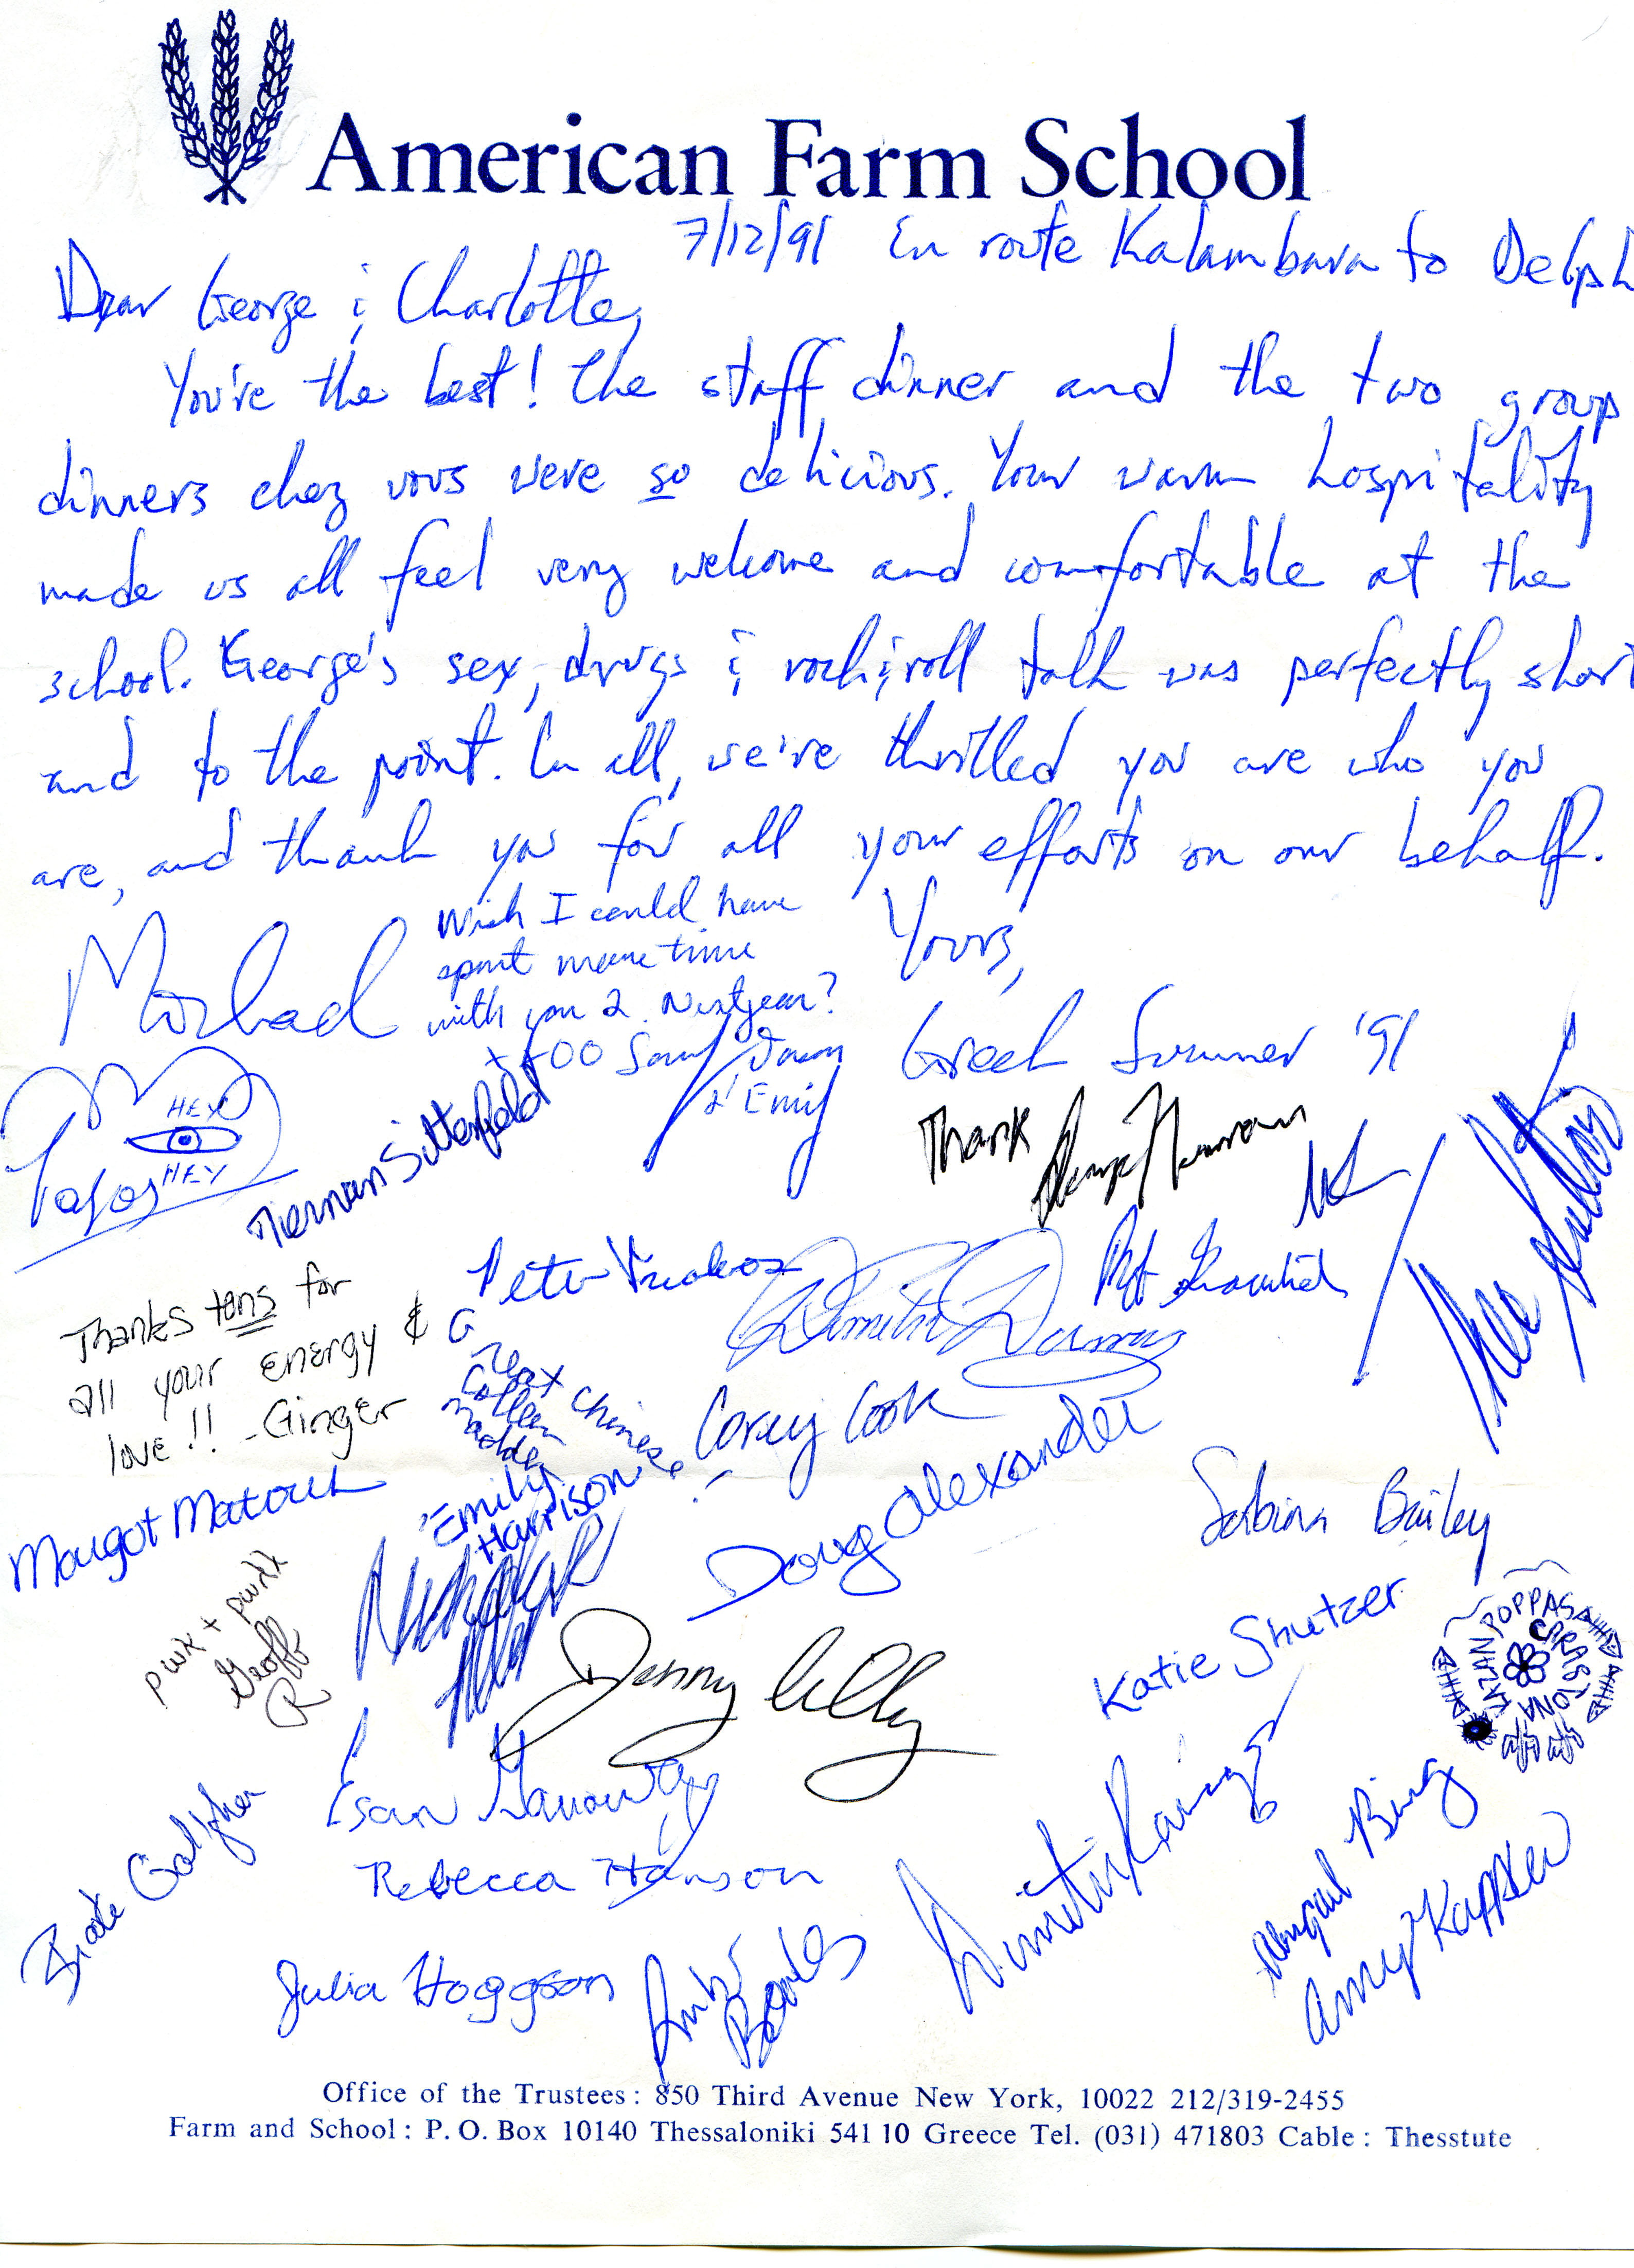 American Farm School
7/12/91 En route Kalambava to Delph
Dear George & Charlotte,
You're the best! The staff dinner and the two group
dinners chez vous were so delicious. Your warm hospitality
made us all feel very welcome and comfortable at the
school. George's sex, drugs & rock & roll talk was perfectly short
and to the point. In all, we're thrilled you are who you
are, and thank you for all your efforts on our behalf.
Yours,
Greek Summer '91
Wish I could have
spent more time
with you 2. Next year?
Jason
& Emily
HEY
HEY
Thank
Thanks tons for
all your energy &
love!! - Ginger
Great chinese
Colleen
Madden
Corey Cook
Doug Alexander
Emily
Harrison
Margot Matouk
Sabina Bailey
Geoff
R
Nicholas
Jenny Lilly
Katie Shutzer
POPPAS
Rebecca Hanson
Julia Hoggson
Abigail Bing
Amy Kappler
Office of the Trustees: 850 Third Avenue New York, 10022 212/319-2455
Farm and School: P. O. Box 10140 Thessaloniki 541 10 Greece Tel. (031) 471803 Cable: Thesstute